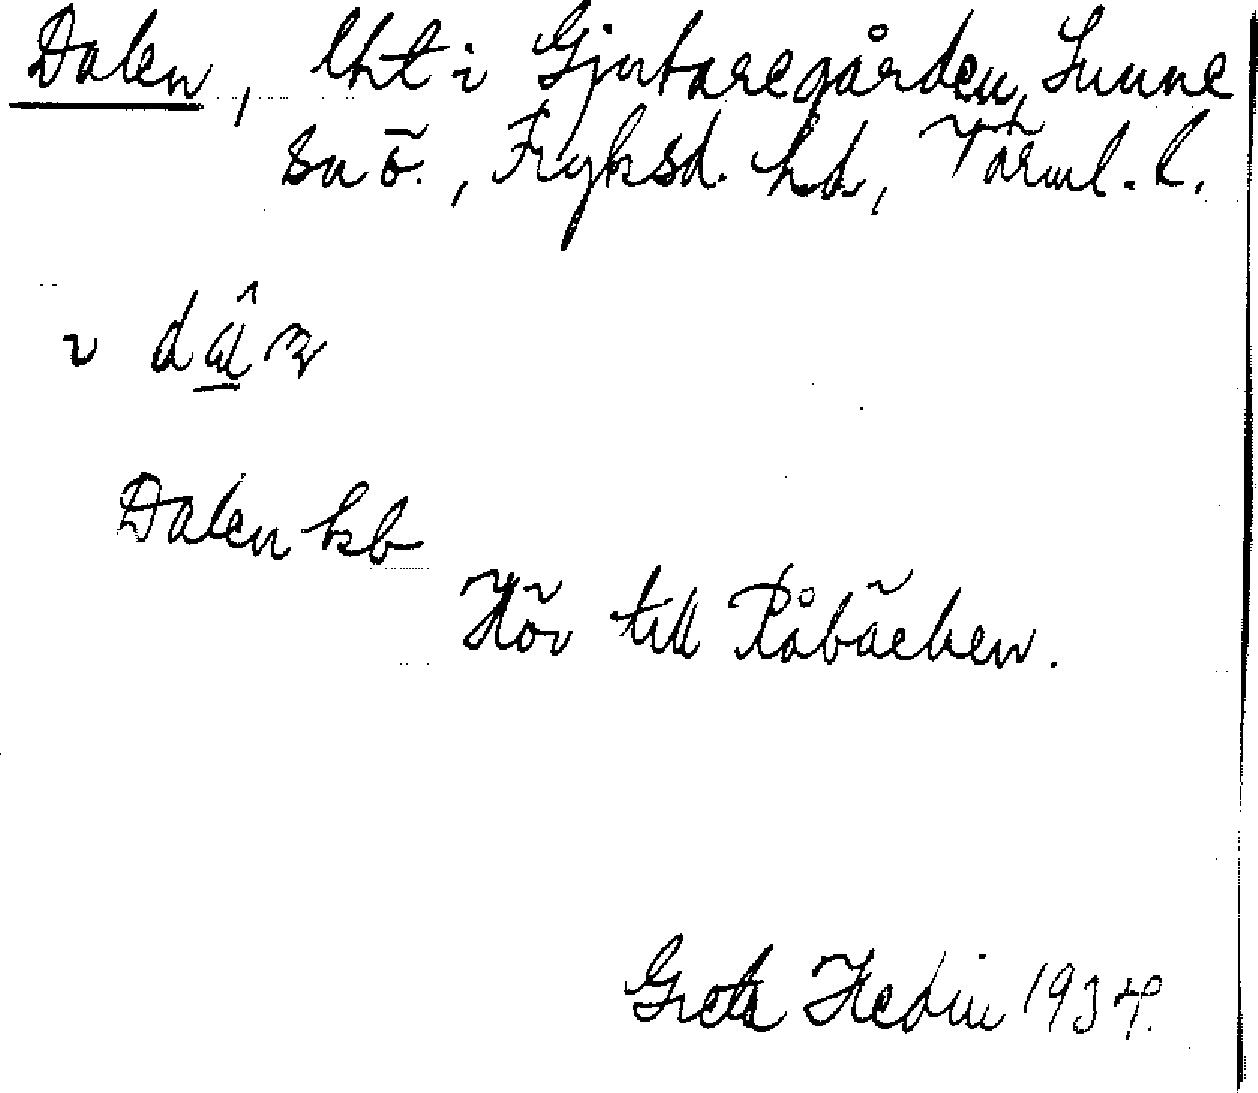 Dalen, lht i Gjutaregården, Sunne
sn ö., Fryksd. hd, Värml. l.
Dalen kb
Hör till Råbäcken.
Greta Hedin 1934.